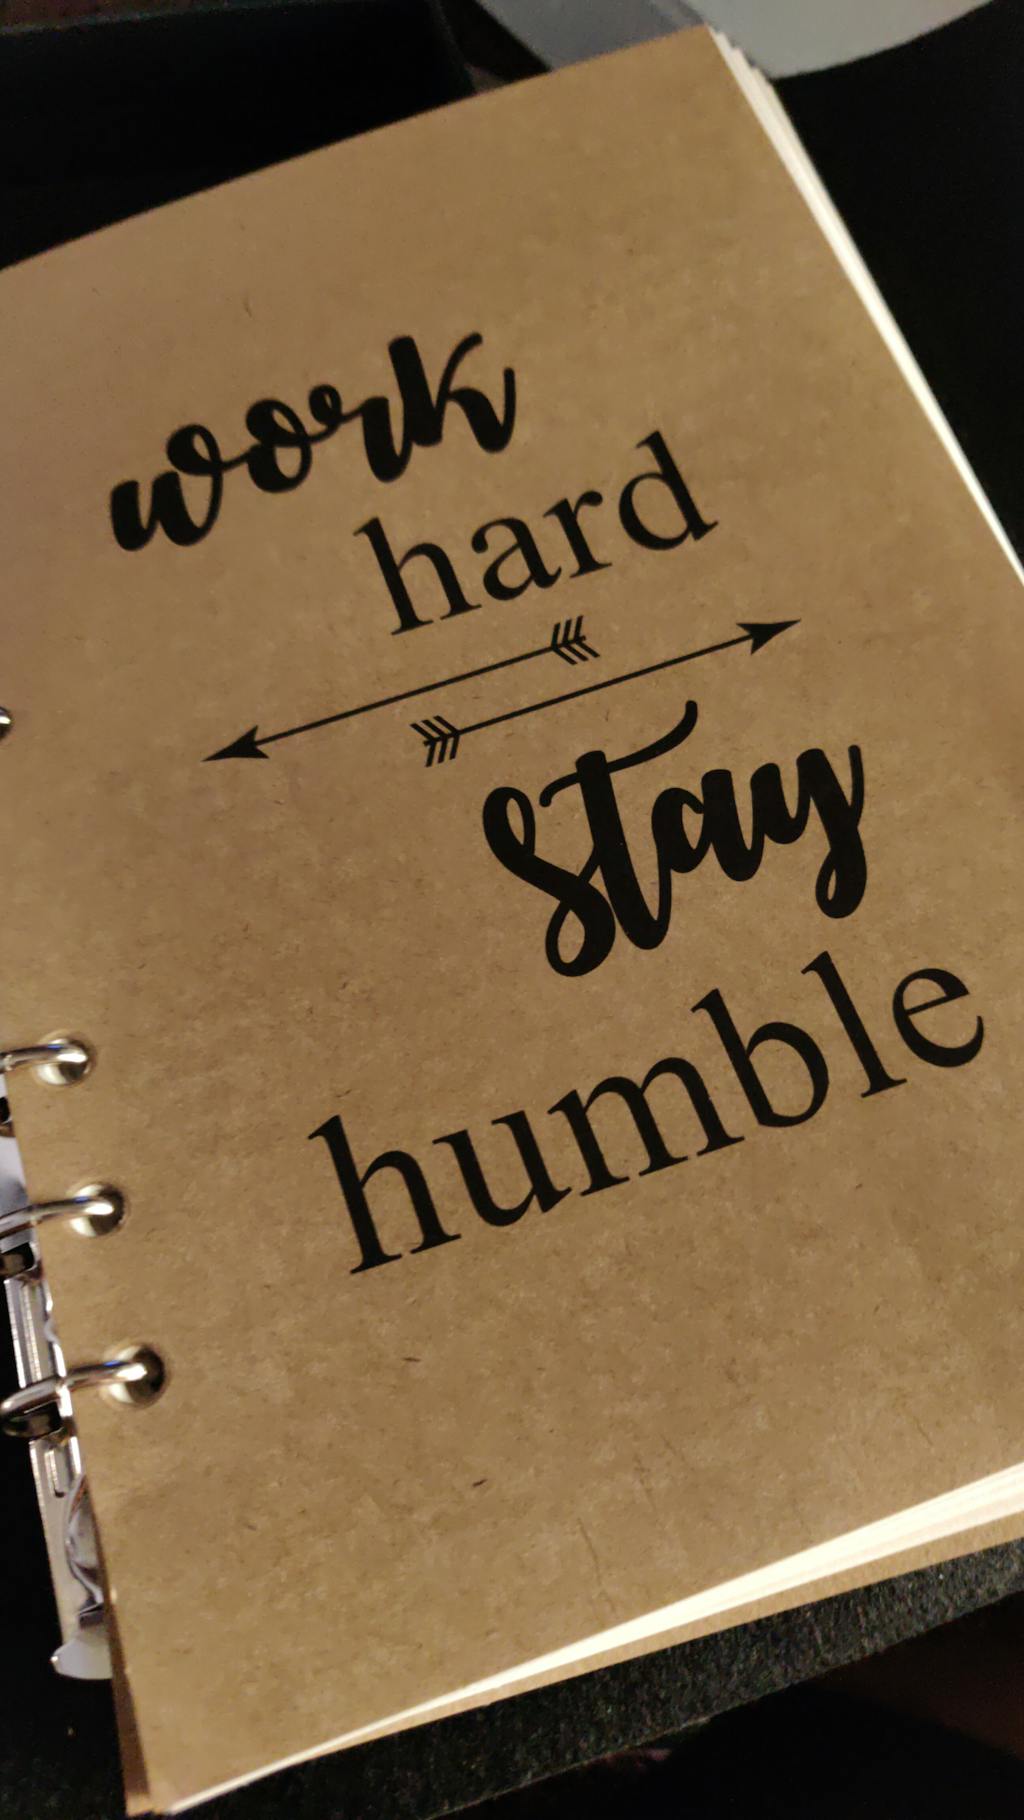 work
hard
stay
humble